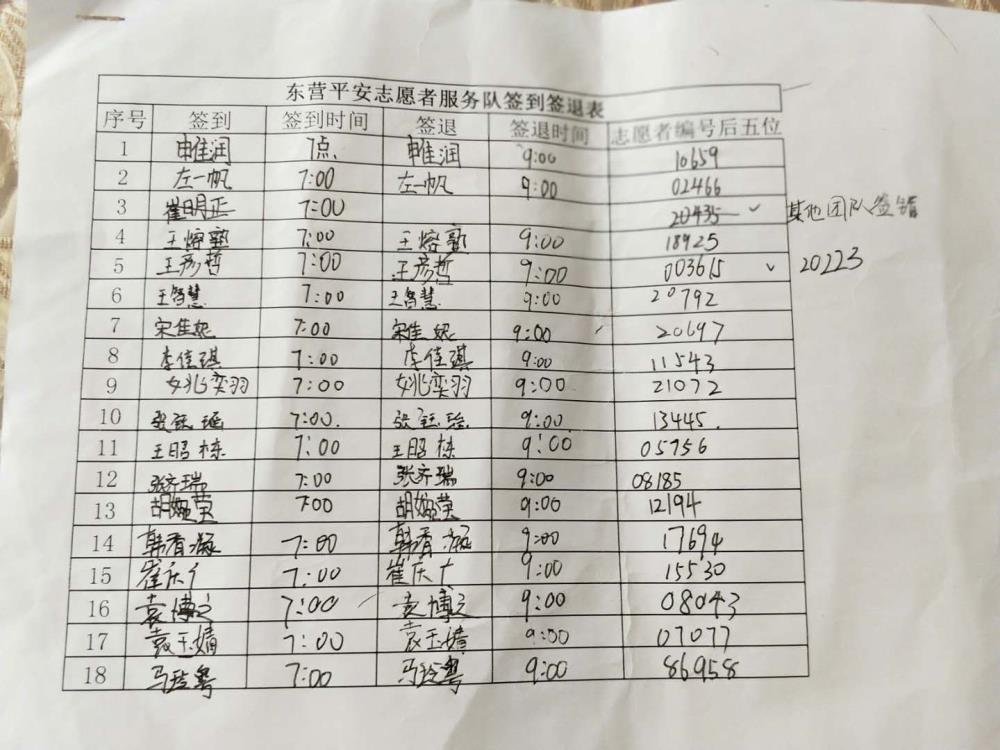 东营平安志愿者服务队签到签退表
序号 签到 签到时间 签退 签退时间 志愿者编号后五位
1 申佳润 7点. 申佳润 9:00 10659
2 左一帆 7:00 左一帆 9:00 02466
3 崔明正 7:00 20435 其他团队签错
4 王熔塾 7:00 王熔塾 9:00 18925
5 王彦哲 7:00 王彦哲 9:00 003615 20223
6 王智慧 7:00 王智慧 9:00 20792
7 宋佳妮 7:00 宋佳妮 9:00 20697
8 李佳琪 7:00 李佳琪 9:00 11543
9 姚奕羽 7:00 姚奕羽 9:00 21072
10 张钰 7:00. 张钰 9:00. 13445.
11 王昭栋 7:00 王昭栋 9:00 05756
12 张齐瑞 7:00 张齐瑞 9:00 08185
13 胡婉莹 7:00 胡婉莹 9:00 12194
14 韩香凝 7:00 韩香凝 9:00 17694
15 崔庆广 7:00 崔庆广 9:00 15530
16 袁博文 7:00 袁博文 9:00 08043
17 袁玉婧 7:00 袁玉婧 9:00 07077
18 马玲粤 7:00 马玲粤 9:00 86958